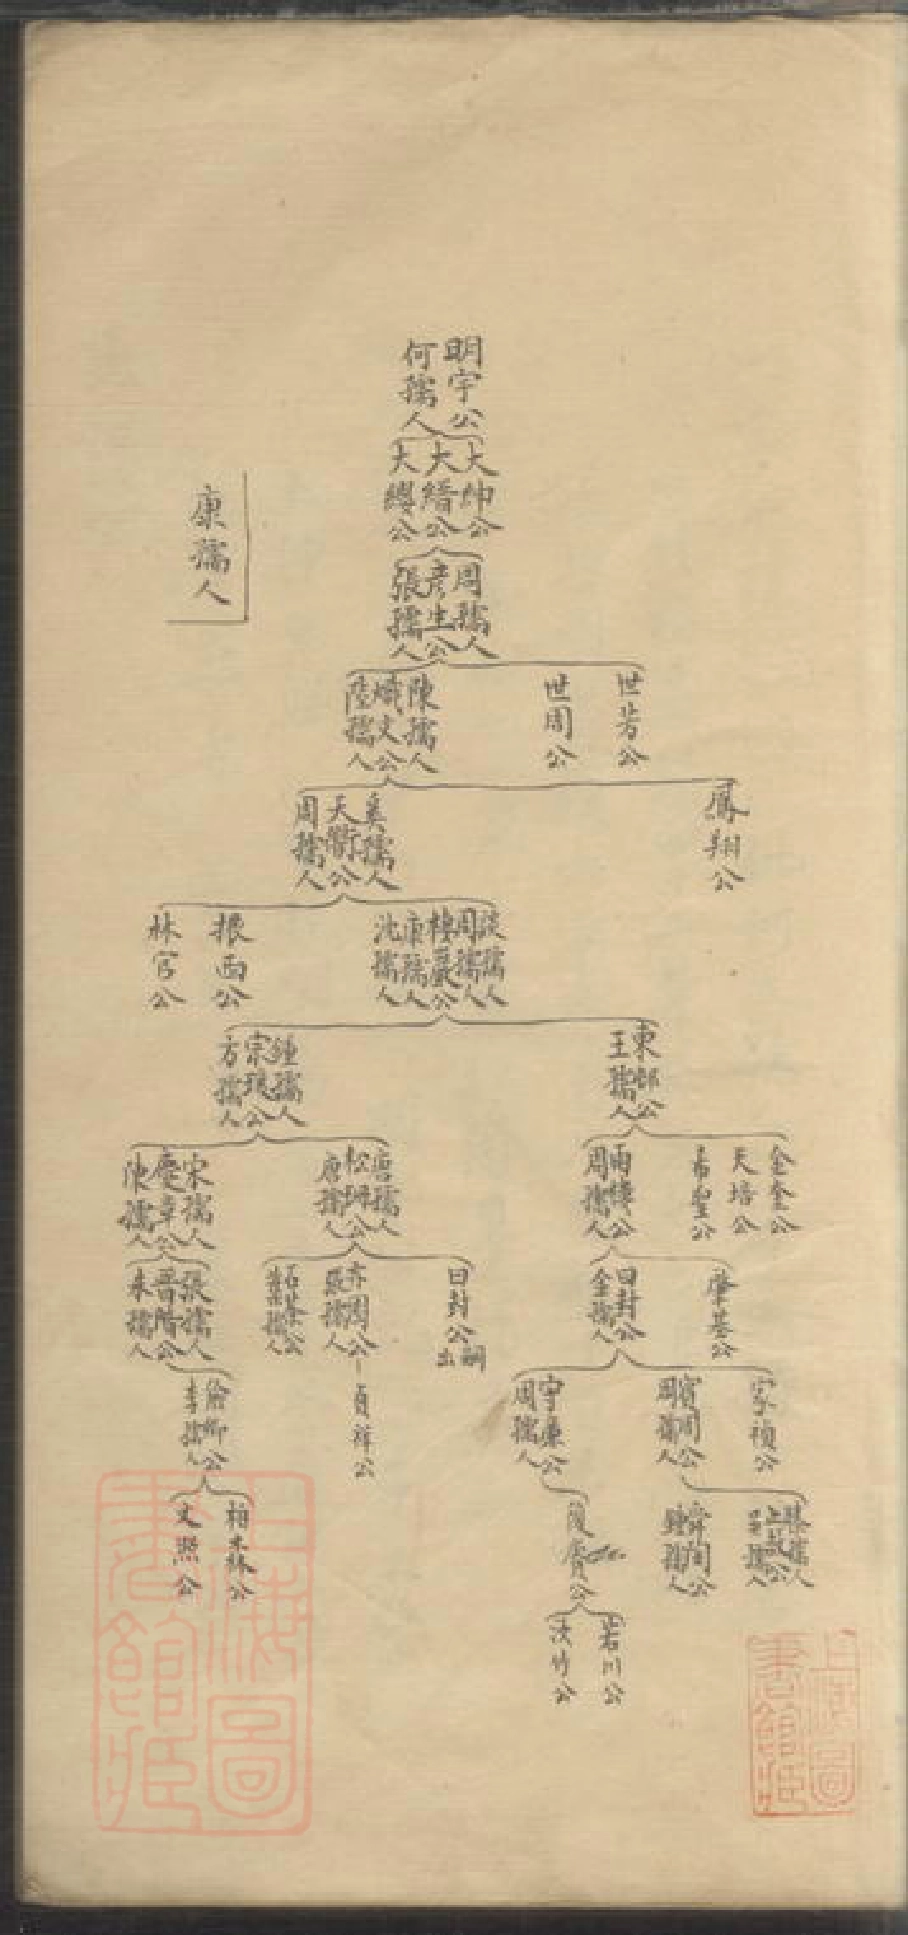 明宇公
何孺人
大紳公
大縉公
大纓公
康孺人
周孺人
彦生公
張孺人
世芳公
世周公
陳孺人
熾文公
陸孺人
鳳翔公
奚孺人
天衢公
周孺人
談孺人
周孺人
棲巖公
康孺人
沈孺人
振西公
林官公
東邨公
王孺人
鍾孺人
宗琅公
方孺人
金奎公
天培公
希聖公
雨綘公
周孺人
唐孺人
松琊公
唐孺人
宋孺人
慶章公
陳孺人
肇基公
曰封公
金孺人
曰封公
出嗣
亦周公
張孺人
石葵公
葉孺人
張孺人
晋階公
朱孺人
家禎公
賓周公
周孺人
守廉公
周孺人
貞祥公
李孺人
孺人
吴孺人
舜間公
鍾孺人
復賡公
柏森公
文熙公
岩川公
淡竹公
上海圖書館藏
上海圖書館藏